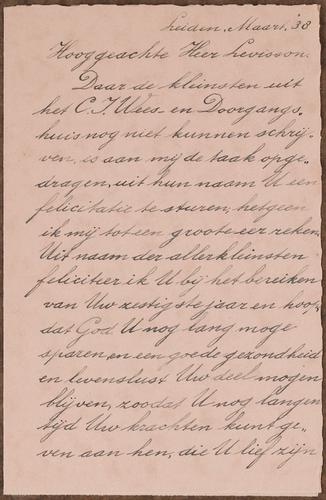 Leiden, Maart, '38
Hooggeachte Heer Levisson.
Daar de kleinsten uit
het C. I. Wees- en Doorgangs-
huis nog niet kunnen schrij-
ven, is aan mij de taak opge-
dragen, uit hun naam U een
felicitatie te sturen, hetgeen
ik mij tot een groote eer reken.
Uit naam der allerkleinsten
feliciteer ik U bij het bereiken
van Uw zestigste jaar en hoop,
dat God U nog lang moge
sparen en een goede gezondheid
en levenslust Uw deel mogen
blijven, zoodat U nog langen
tijd Uw krachten kunt ge-
ven aan hen, die U lief zijn